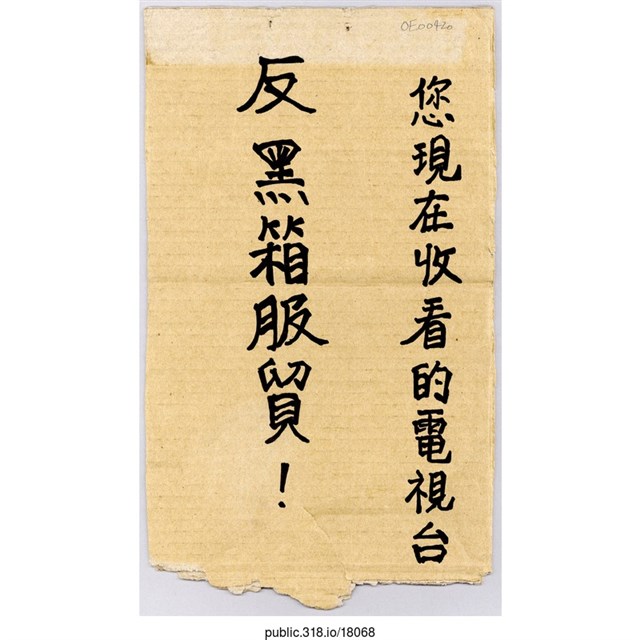 OE00420
您現在收看的電視台
反黑箱服貿！
public.318.io/18068